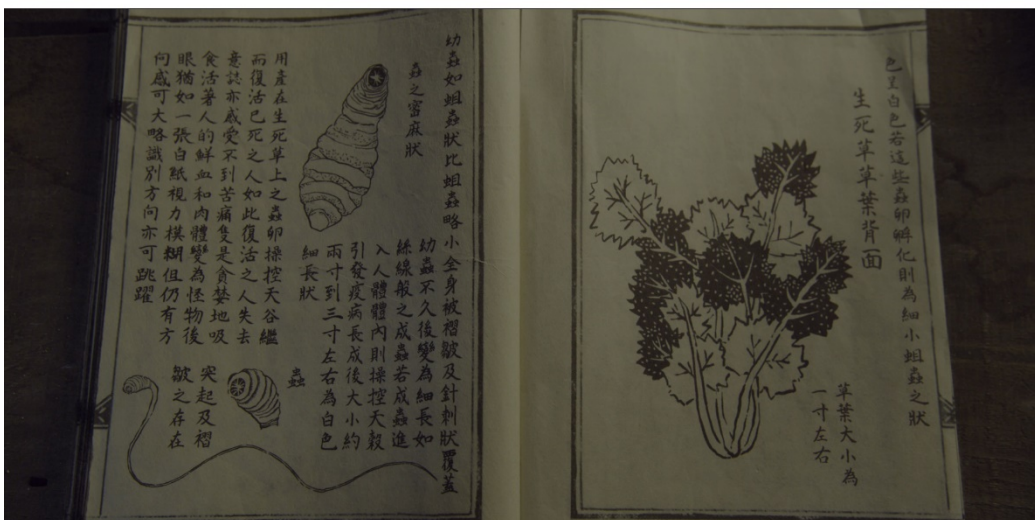 色呈白色若這些蟲卵孵化則為細小蛆蟲之狀
生死草草葉背面
草葉大小為
一寸左右
幼蟲如蛆蟲狀比蛆蟲略小全身被褶皺及針刺狀覆蓋
蟲之密麻狀
幼蟲不久後變為細長如
絲線般之成蟲若成蟲進
入人體體內則操控天穀
引發疫病長成後大小約
兩寸到三寸左右為白色
細長狀
用產在生死草上之蟲卵操控天谷繼
而復活已死之人如此復活之人失去
意誌亦感受不到苦痛隻是貪婪地吸
食活著人的鮮血和肉體變為怪物後
眼猶如一張白紙視力模糊但仍有方
向感可大略識別方向亦可跳躍
蟲
突起及褶
皺之存在